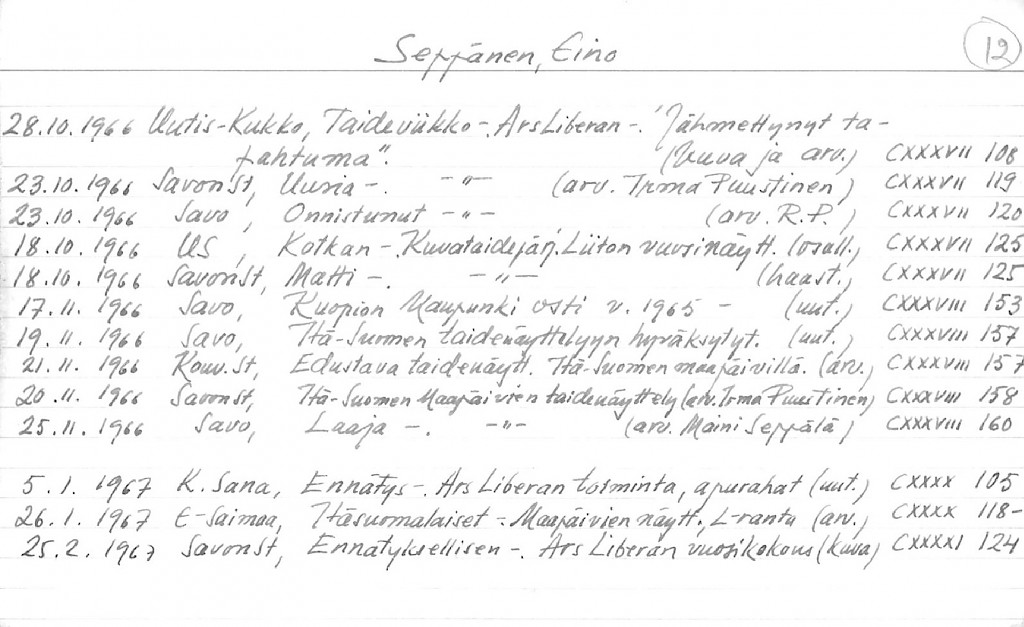 12
Seppänen, Eino
28.10.1966 Uutis-Kukko, Taideviikko -. Ars Liberan -. "Jähmettynyt ta-
pahtuma". (kuva ja arv.) CXXXVII 108
23.10.1966 SavonSt, Uusia -. -"- (arv. Irma Puustinen) CXXXVII 119
23.10.1966 Savo, Onnistunut -"- (arv. R.P.) CXXXVII 120
18.10.1966 US, Kotkan -. Kuvataidejärj. Liiton vuosinäytt. (osall.) CXXXVII 125
18.10.1966 SavonSt, Matti -. -"- (haast.) CXXXVII 125
17.11.1966 Savo, Kuopion Kaupunki osti v. 1965 - (uut.) CXXXVIII 153
19.11.1966 Savo, Itä-Suomen taidenäyttelyyn hyväksytyt. (uut.) CXXXVIII 157
21.11.1966 Kouv.St, Edustava taidenäytt. Itä-Suomen maapäivillä. (arv.) CXXXVIII 157
20.11.1966 SavonSt, Itä-Suomen Maapäivien taidenäyttely (arv. Irma Puustinen) CXXXVIII 158
25.11.1966 Savo, Laaja -. -"- (arv. Maini Seppälä) CXXXVIII 160
5.1.1967 K. Sana, Ennätys -. Ars Liberan toiminta, apurahat (uut.) CXXXX 105
26.1.1967 E-Saimaa, Itäsuomalaiset -. Maapäivien näytt., L-ranta (arv.) CXXXX 118-
25.2.1967 SavonSt, Ennätyksellisen -. Ars Liberan vuosikokous (kuva) CXXXXI 124